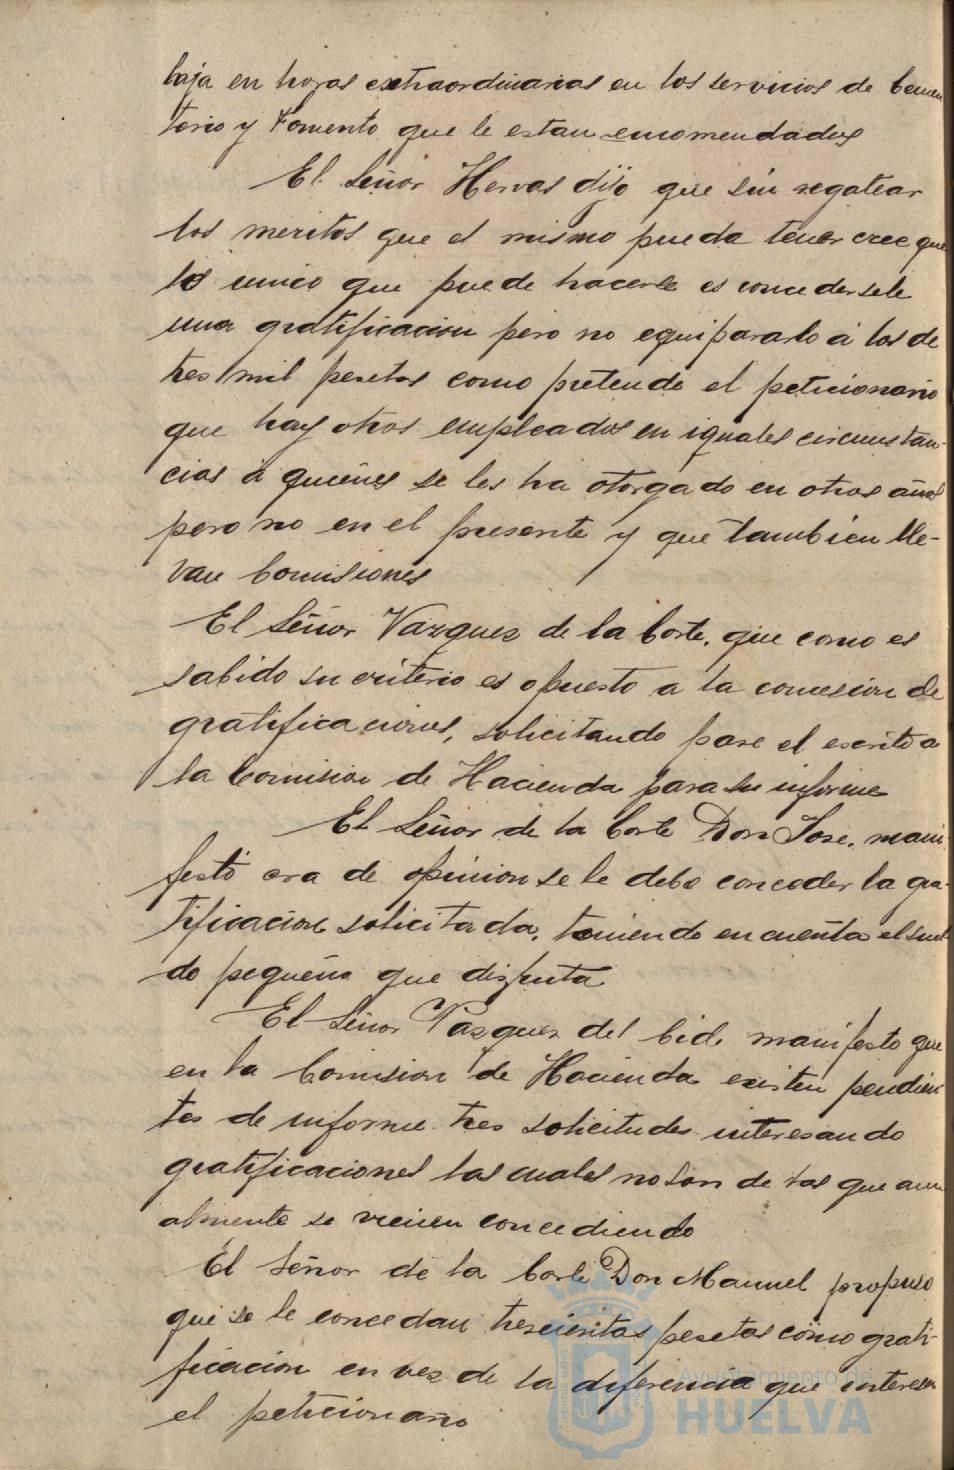 baja en horas extraordinarias en los servicios de Cemen
terio y Fomento que le estan encomendados
El Señor Hervas dijo que sin regatear
los meritos que el mismo pueda tener cree que
lo unico que puede hacerse es concedersele
una gratificacion pero no equipararlo á los de
tres mil pesetas como pretende el peticionario
que hay otros empleados en iguales circunstan-
cias á quienes se les ha otorgado en otros años
pero no en el presente y que tambien lle-
van Comisiones
El Señor Vazquez de la Corte, que como es
sabido su criterio es opuesto a la concesion de
gratificaciones, solicitando pase el escrito a
la Comision de Hacienda para su informe
El Señor de la Corte Don Jose, mani-
festó era de opinion se le debe conceder la gra-
tificacion solicitada, teniendo en cuenta el suel-
do pequeño que disfruta
El Señor Vazquez del Cid, manifesto que
en la Comision de Hacienda existen pendien
tes de informe tres solicitudes interesando
gratificaciones las cuales no son de las que anu
almente se vienen concediendo
El Señor de la Corte Don Manuel propuso
que se le concedan trescientas pesetas como grati-
ficación en vez de la diferencia que interesa
el peticionario
Ayuntamiento de
HUELVA